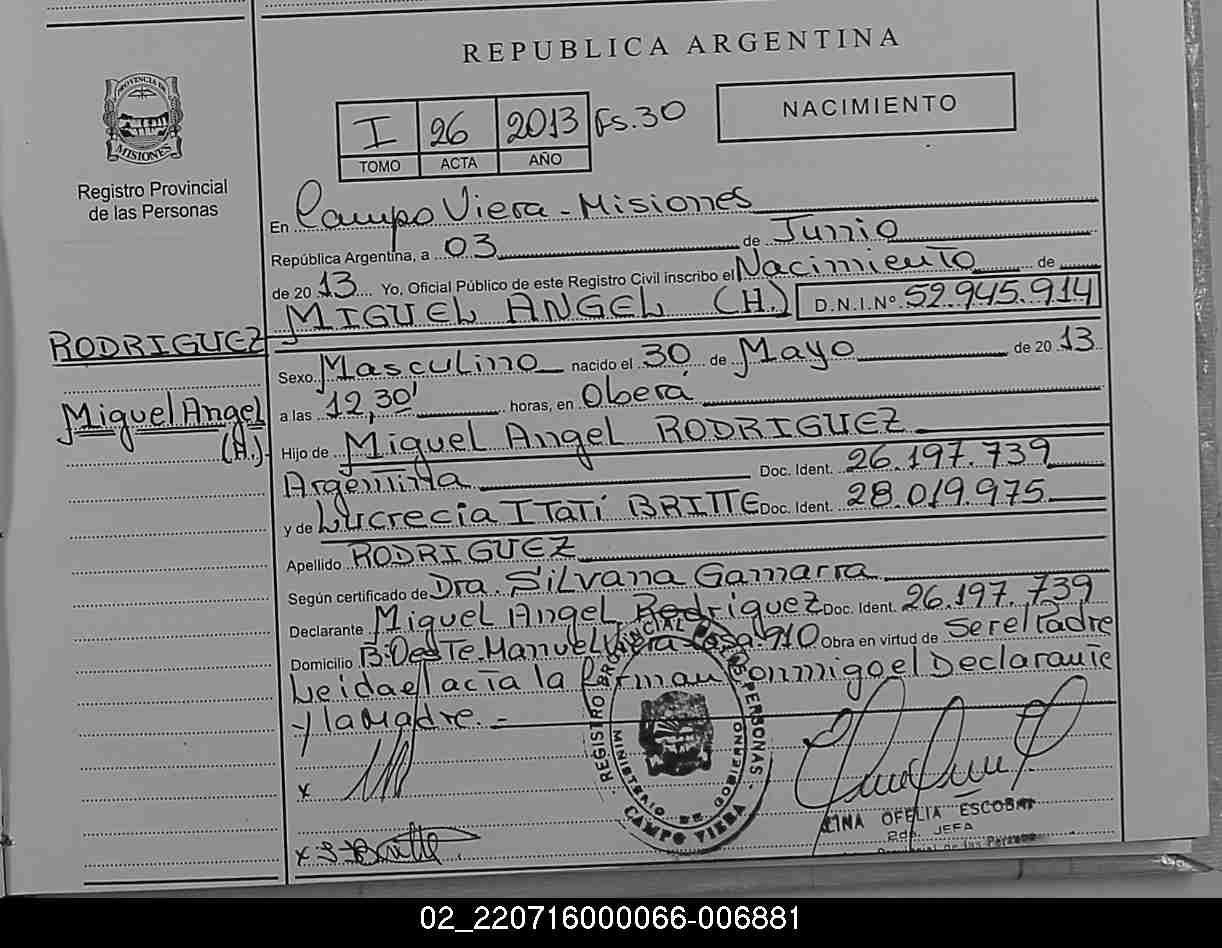 REPUBLICA ARGENTINA
PROVINCIA DE
MISIONES
Registro Provincial
de las Personas
I 26 2013 Fs.30
TOMO ACTA AÑO
NACIMIENTO
En Campo Viera - Misiones
República Argentina, a 03 de Junio
de 20 13 Yo, Oficial Público de este Registro Civil inscribo el Nacimiento de
MIGUEL ANGEL (H.) D.N.I.Nº 52.945.914
RODRIGUEZ
Miguel Angel
(H.)
Sexo Masculino nacido el 30 de Mayo de 20 13
a las 12,30' horas, en Oberá
Hijo de Miguel Angel RODRIGUEZ
Argentina Doc. Ident. 26.197.739
y de Lucrecia Itatí BRITTE Doc. Ident. 28.019.975
Apellido RODRIGUEZ
Según certificado de Dra. Silvana Gamarra
Declarante Miguel Angel Rodriguez Doc. Ident. 26.197.739
Domicilio B: Oeste. Manuel Viera 910 Obra en virtud de ser el Padre
Leida el acta la firman conmigo el Declarante
y la Madre. -
REGISTRO PROVINCIAL DE LAS PERSONAS
MINISTERIO DE GOBIERNO
CAMPO VIERA
x
x Britte
LINA OFELIA ESCOBAR
2da. JEFA
Provincial de las Personas
02_220716000066-006881